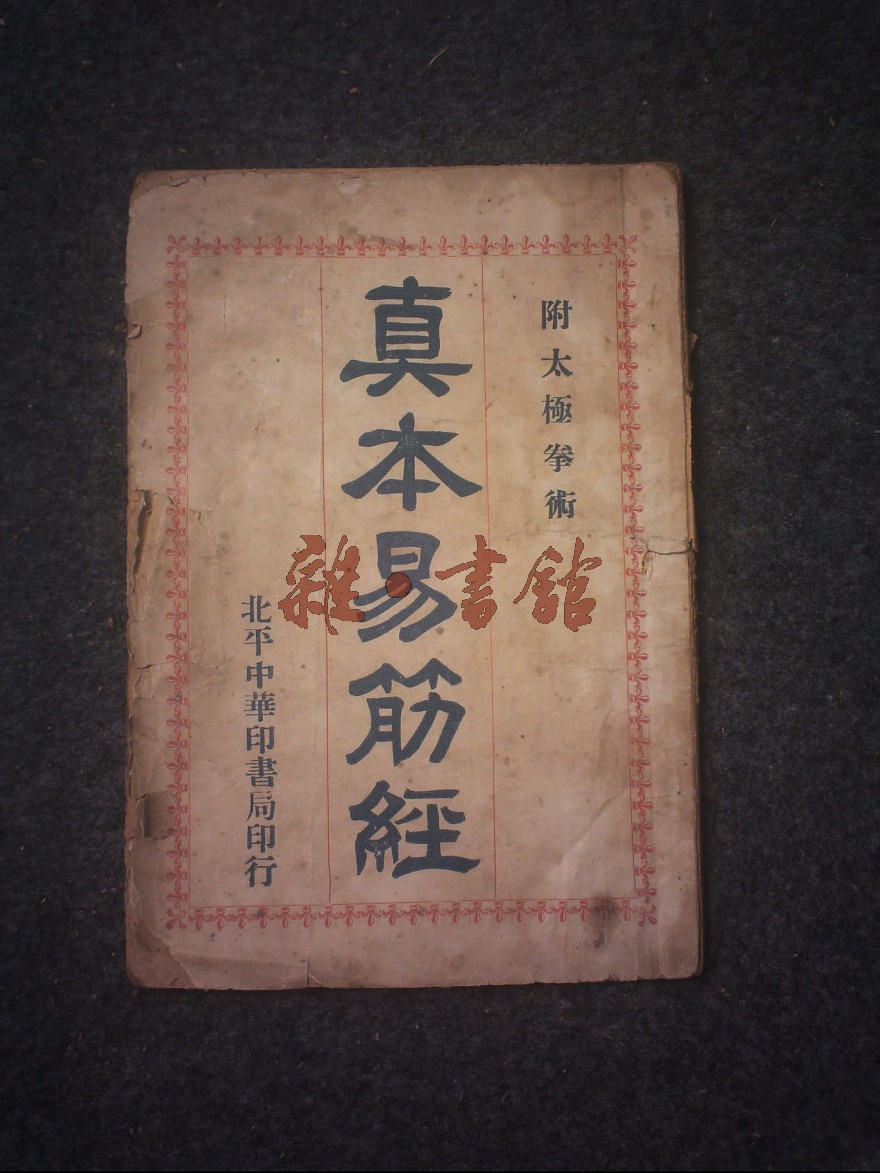 附太極拳術
真本易筋經
北平中華印書局印行
雜·書館